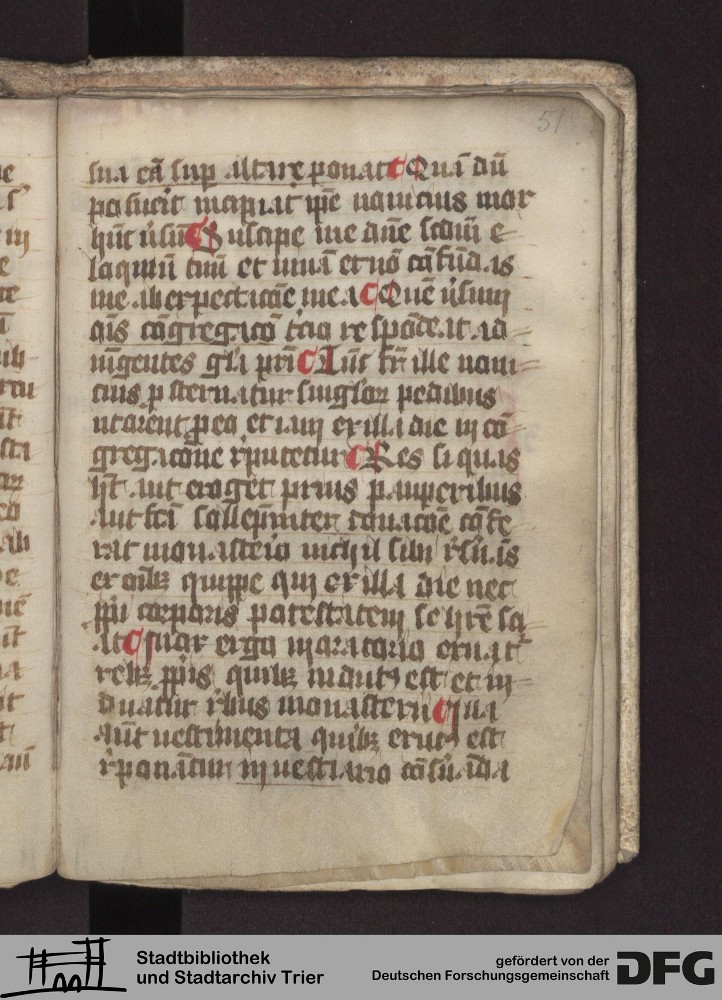 51
sua cā sup altare ponat Quā dū
posuerit incipiat ip̄e nouicius mox
hūc v̄sū Suscipe me dn̄e scdm̄ e-
loquiū tuū et uiuā et nō cōfūdas
me ab expectacōe mea Quē v̄sum
om̄s cōgregacō tcio respōdeat ad-
iūgentes gl̄a pr̄i Tūc fr̄ ille noui-
cius p sternatur singlor pedibus
ut orent p eo et iam ex illa die in cō-
gregacōne r̄putetur Res si quas
h̄t aut eroget prius pauperibus
aut fc̄a sollēpniter donacōe cōfe-
rat monasterio nichil sibi r̄s̄uās
ex oīb; quippe qui ex illa die nec
pp̄ii corporis potestatem se h̄re sci-
at mox ergo in oratorio exuat
reb; pp̄iis quib; indut est et in-
duatur r̄bus monasterii illa
aūt uestimenta quib; exut est
r̄ponātur in uestiario cōs̄uāda
Stadtbibliothek
und Stadtarchiv Trier
gefördert von der
Deutschen Forschungsgemeinschaft
DFG